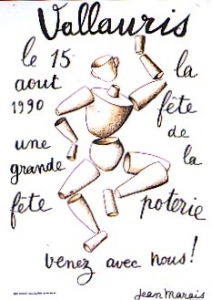 Vallauris
le 15
août
1990
la
fête
de
la
une
grande
fête
poterie
venez avec nous!
Jean Marais